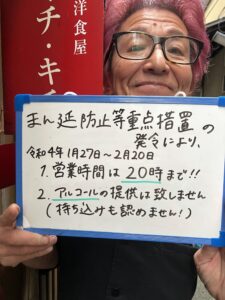 洋食屋
チ・キチ
まん延防止等重点措置の
発令により、
令和4年1月27日~2月20日
1. 営業時間は20時まで!!
2. アルコールの提供は致しません
(持ち込みも認めません!)